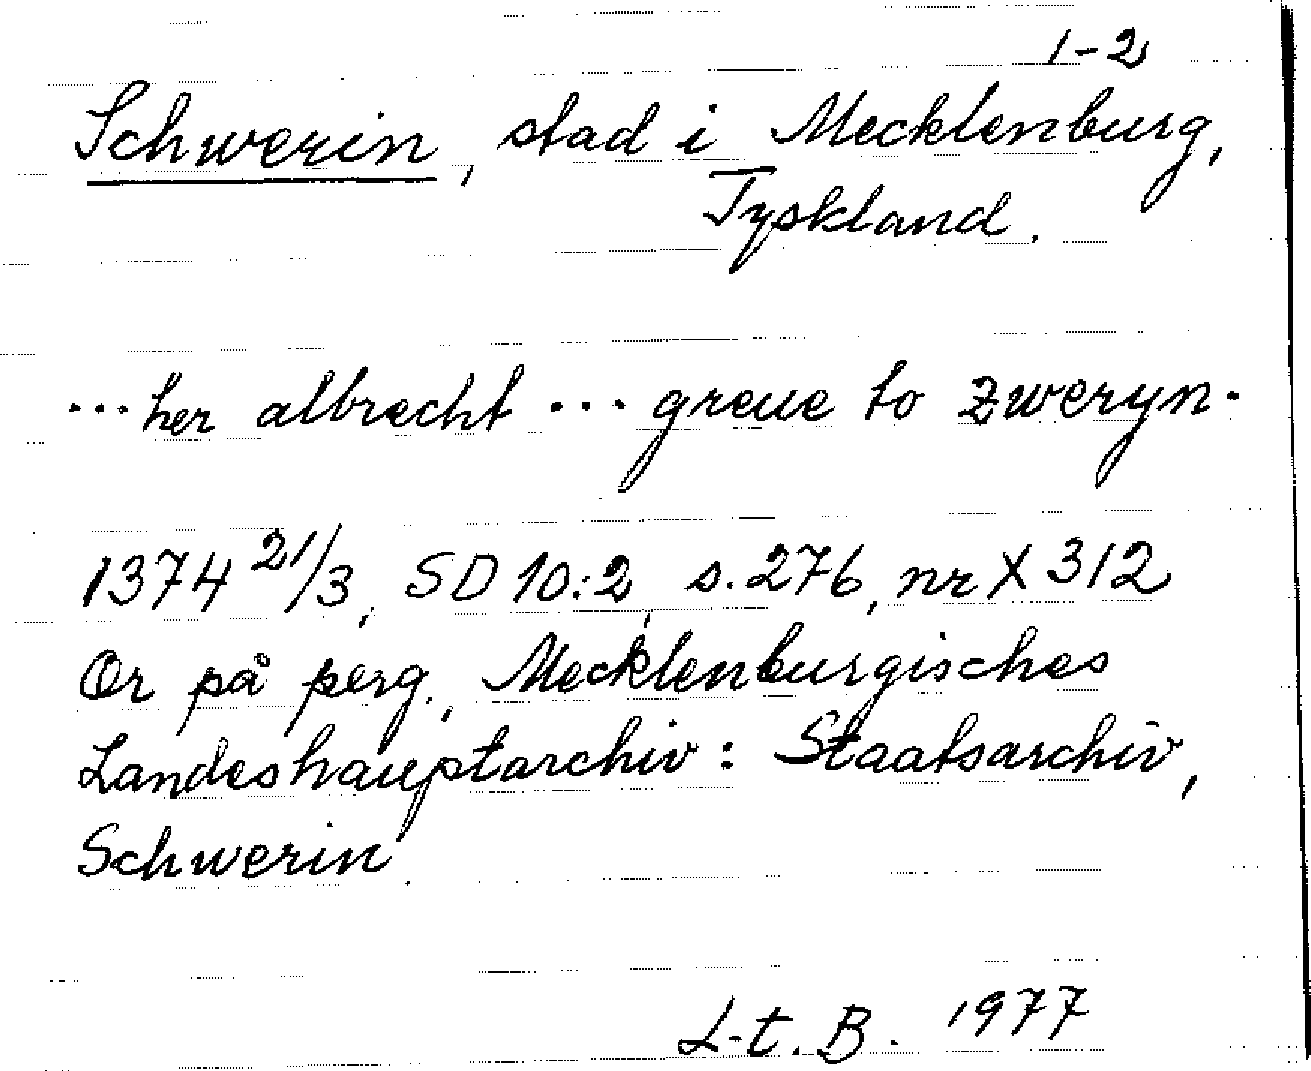 1-2
Schwerin, stad i Mecklenburg,
Tyskland.
...her albrecht ... greue to zweryn.
1374 21/3, SD 10:2, s. 276, nr X 312
Or på perg., Mecklenburgisches
Landeshauptarchiv: Staatsarchiv,
Schwerin.
L-t. B. 1977